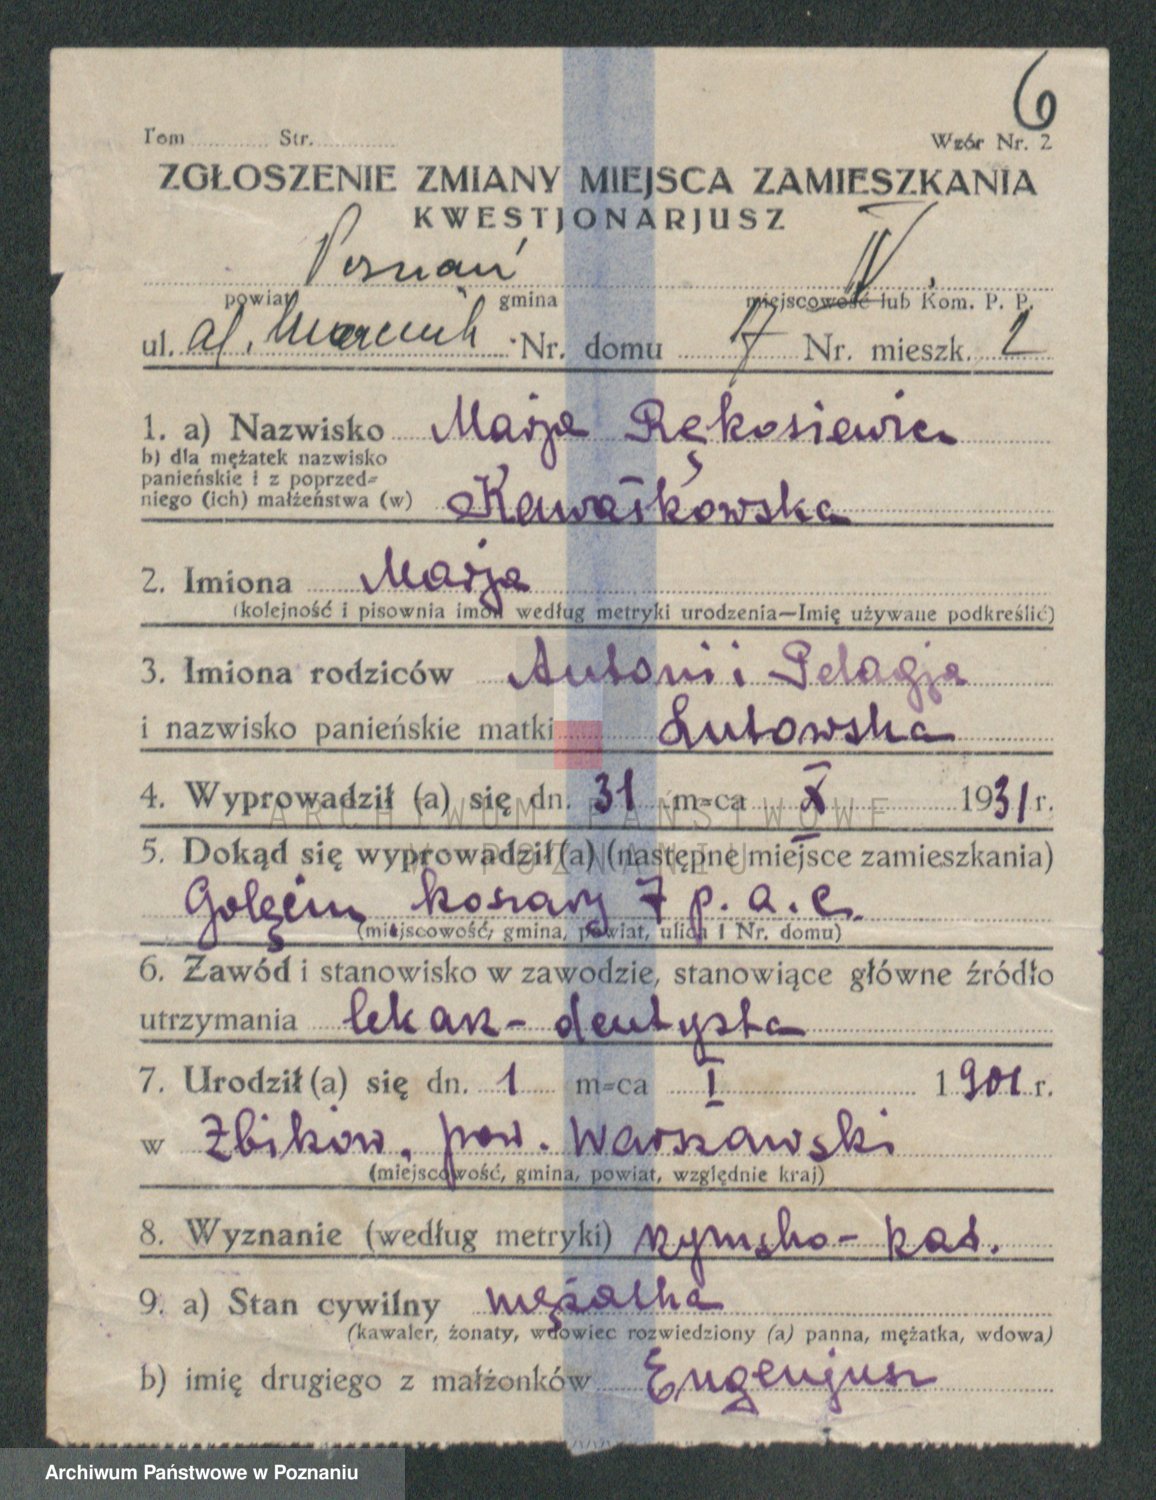 6
Tom ............ Str. ............ Wzór Nr. 2
ZGŁOSZENIE ZMIANY MIEJSCA ZAMIESZKANIA
KWESTJONARJUSZ
Poznań IV.
powiat gmina miejscowość lub Kom. P. P.
ul. al. Marcink Nr. domu 7 Nr. mieszk. 2
1. a) Nazwisko Marja Rękosiewicz
b) dla mężatek nazwisko
panieńskie i z poprzed=
niego (ich) małżeństwa (w) Kawałkowska
2. Imiona Marja
(kolejność i pisownia imon według metryki urodzenia—Imię używane podkreślić)
3. Imiona rodziców Antoni i Pelagja
i nazwisko panieńskie matki Lutowska
4. Wyprowadził (a) się dn. 31 m=ca X 1931 r.
ARCHIWUM PAŃSTWOWE
5. Dokąd się wyprowadził(a) (następne miejsce zamieszkania)
W POZNANIU
Golęcin koszary 7 p. a. c.
(miejscowość, gmina, powiat, ulica i Nr. domu)
6. Zawód i stanowisko w zawodzie, stanowiące główne źródło
utrzymania lekarz-dentysta
7. Urodził (a) się dn. 1 m=ca I 1901 r.
w Zbików, pow. Warszawski
(miejscowość, gmina, powiat, względnie kraj)
8. Wyznanie (według metryki) rzymsko-kat.
9. a) Stan cywilny mężatka
(kawaler, żonaty, wdowiec rozwiedziony (a) panna, mężatka, wdowa)
b) imię drugiego z małżonków Eugenjusz
Archiwum Państwowe w Poznaniu